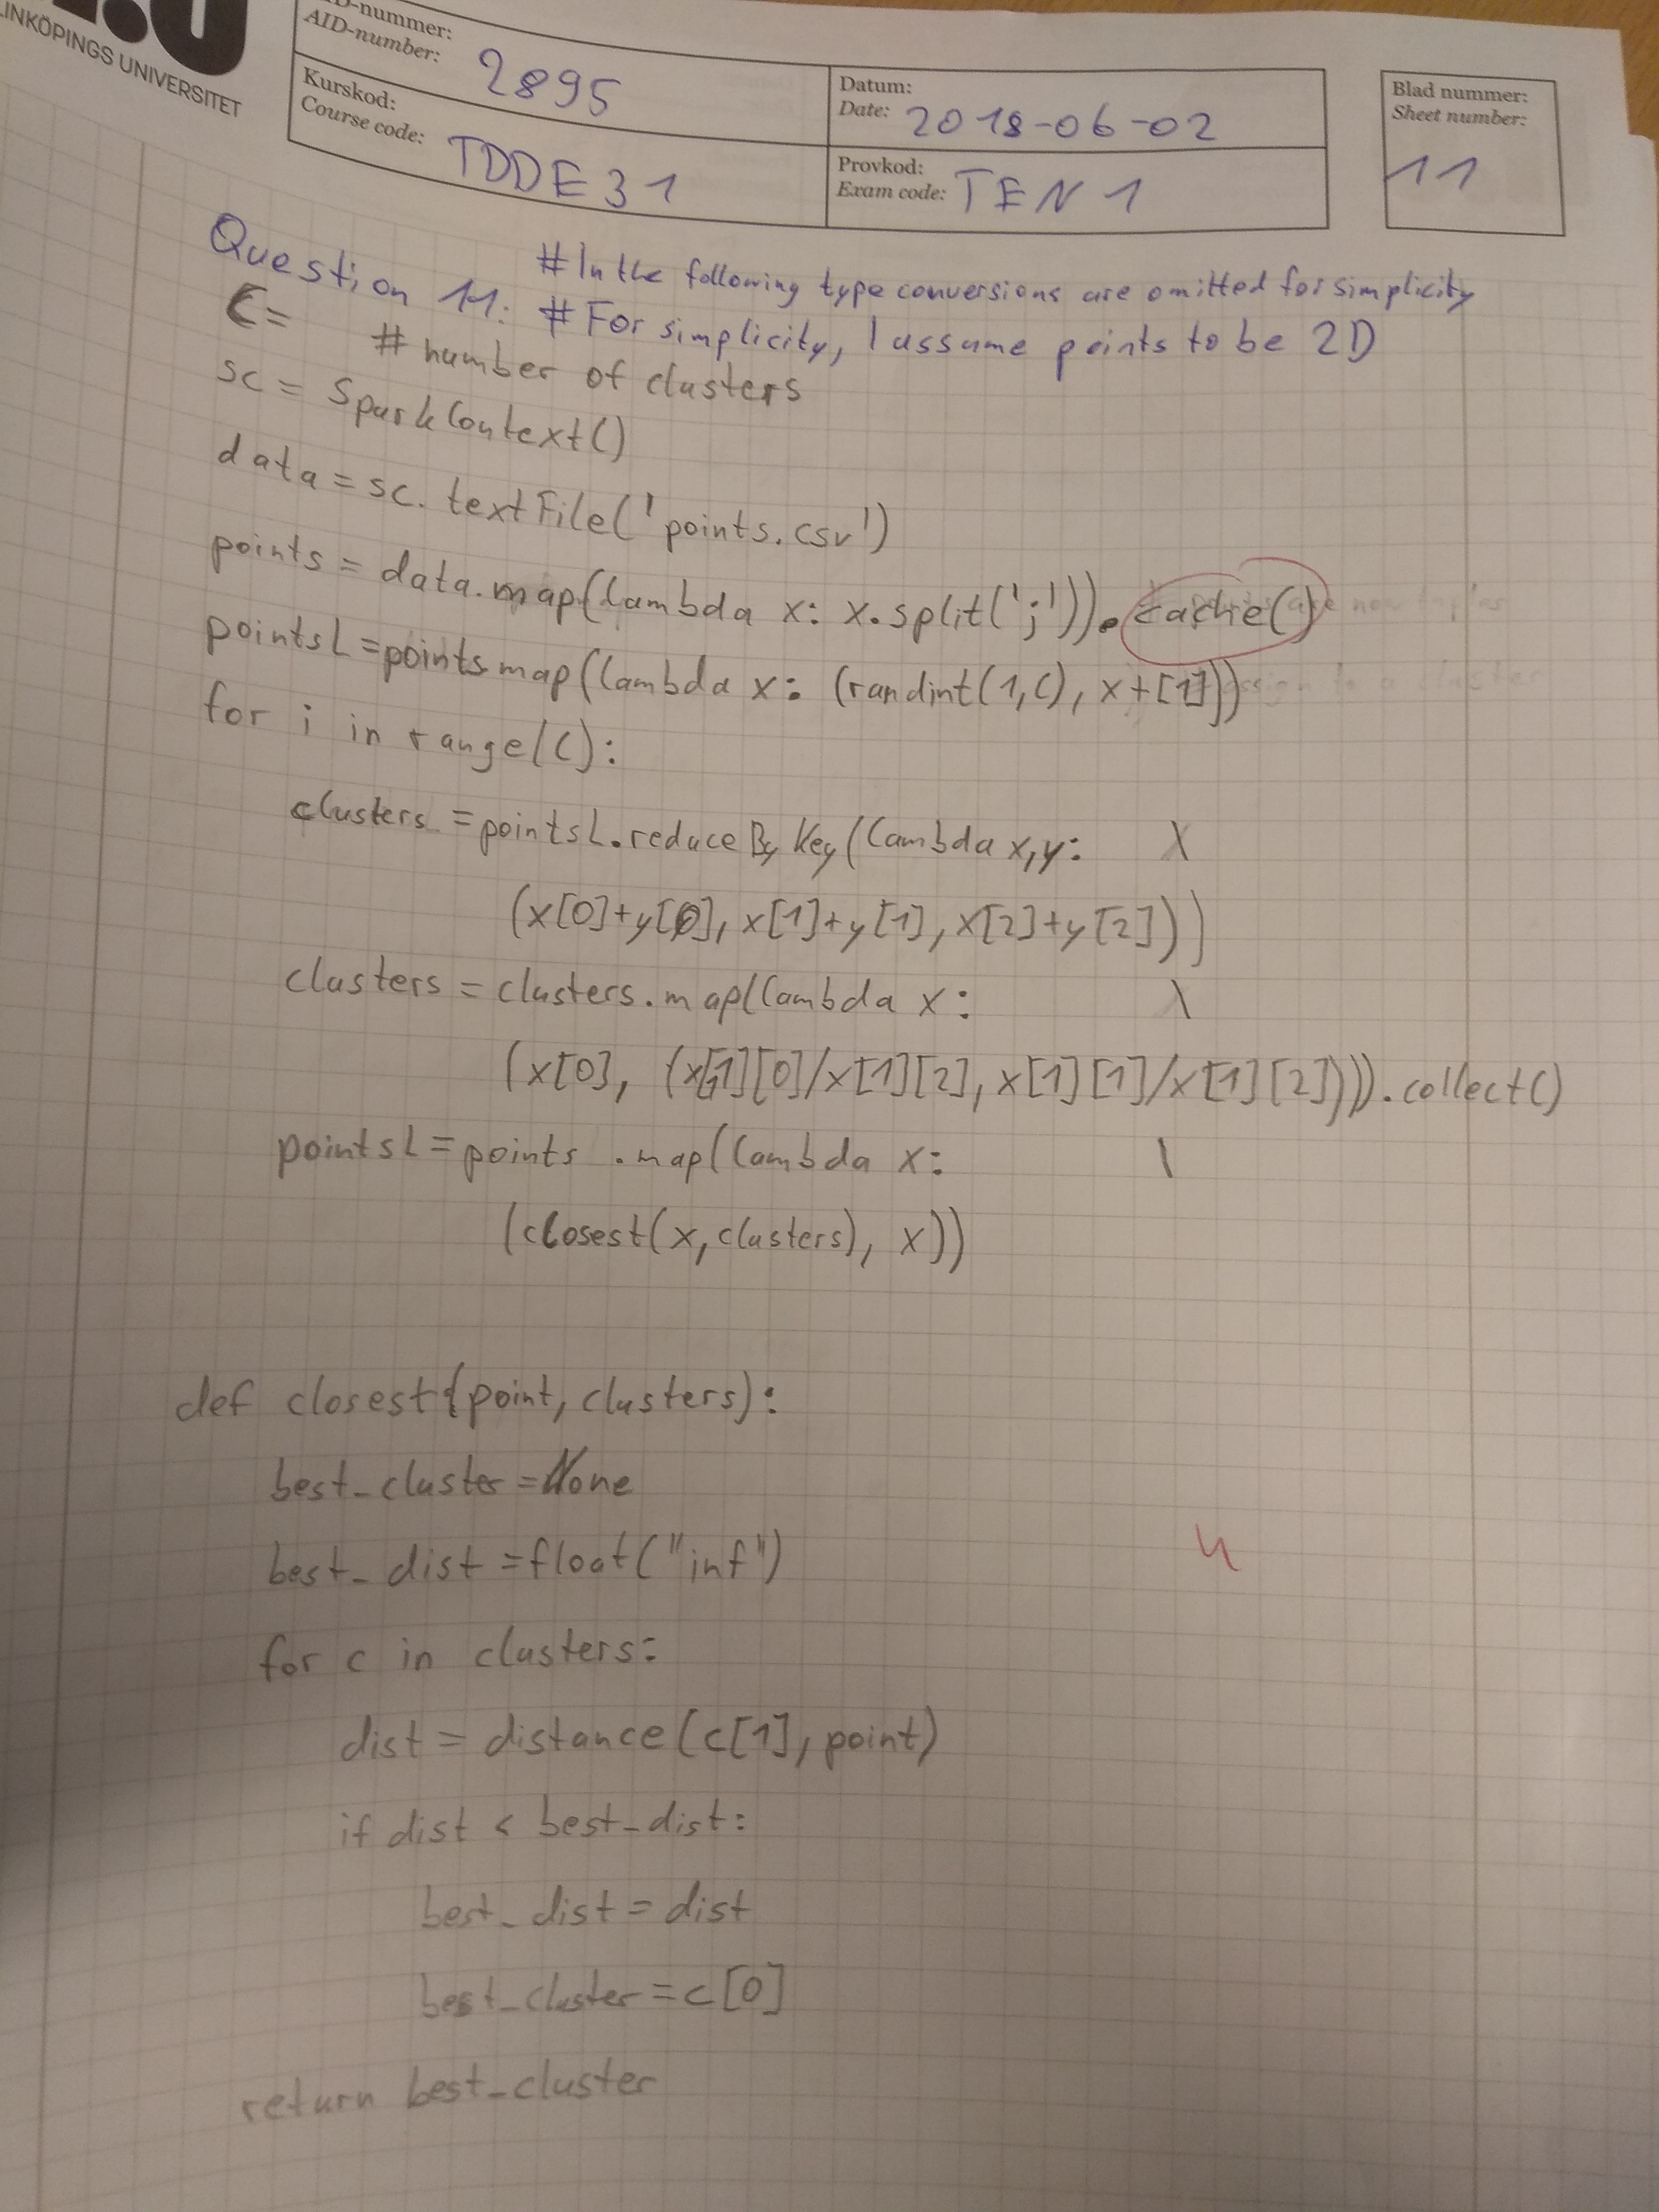 LINKÖPINGS UNIVERSITET
-nummer:
AID-number: 2895
Kurskod:
Course code: TDDE31
Datum:
Date: 2018-06-02
Provkod:
Exam code: TEN1
Blad nummer:
Sheet number:
11
Question 11: # In the following type conversions are omitted for simplicity
# For simplicity, I assume points to be 2D
C= # number of clusters
sc = SparkContext()
data = sc.textFile('points.csv')
points = data.map(lambda x: x.split(';')).cache()
pointsL = points map(lambda x: (randint(1,C), x+[1]))
for i in range(C):
clusters = pointsL.reduceByKey(lambda x,y: \
(x[0]+y[0], x[1]+y[1], x[2]+y[2]))
clusters = clusters.map(lambda x: \
(x[0], (x[1][0]/x[1][2], x[1][1]/x[1][2]))).collect()
pointsL = points .map(lambda x: \
(closest(x,clusters), x))
def closest(point, clusters):
best_cluster = None
best_dist = float("inf")
for c in clusters:
dist = distance(c[1], point)
if dist < best_dist:
best_dist = dist
best_cluster = c[0]
return best_cluster
4